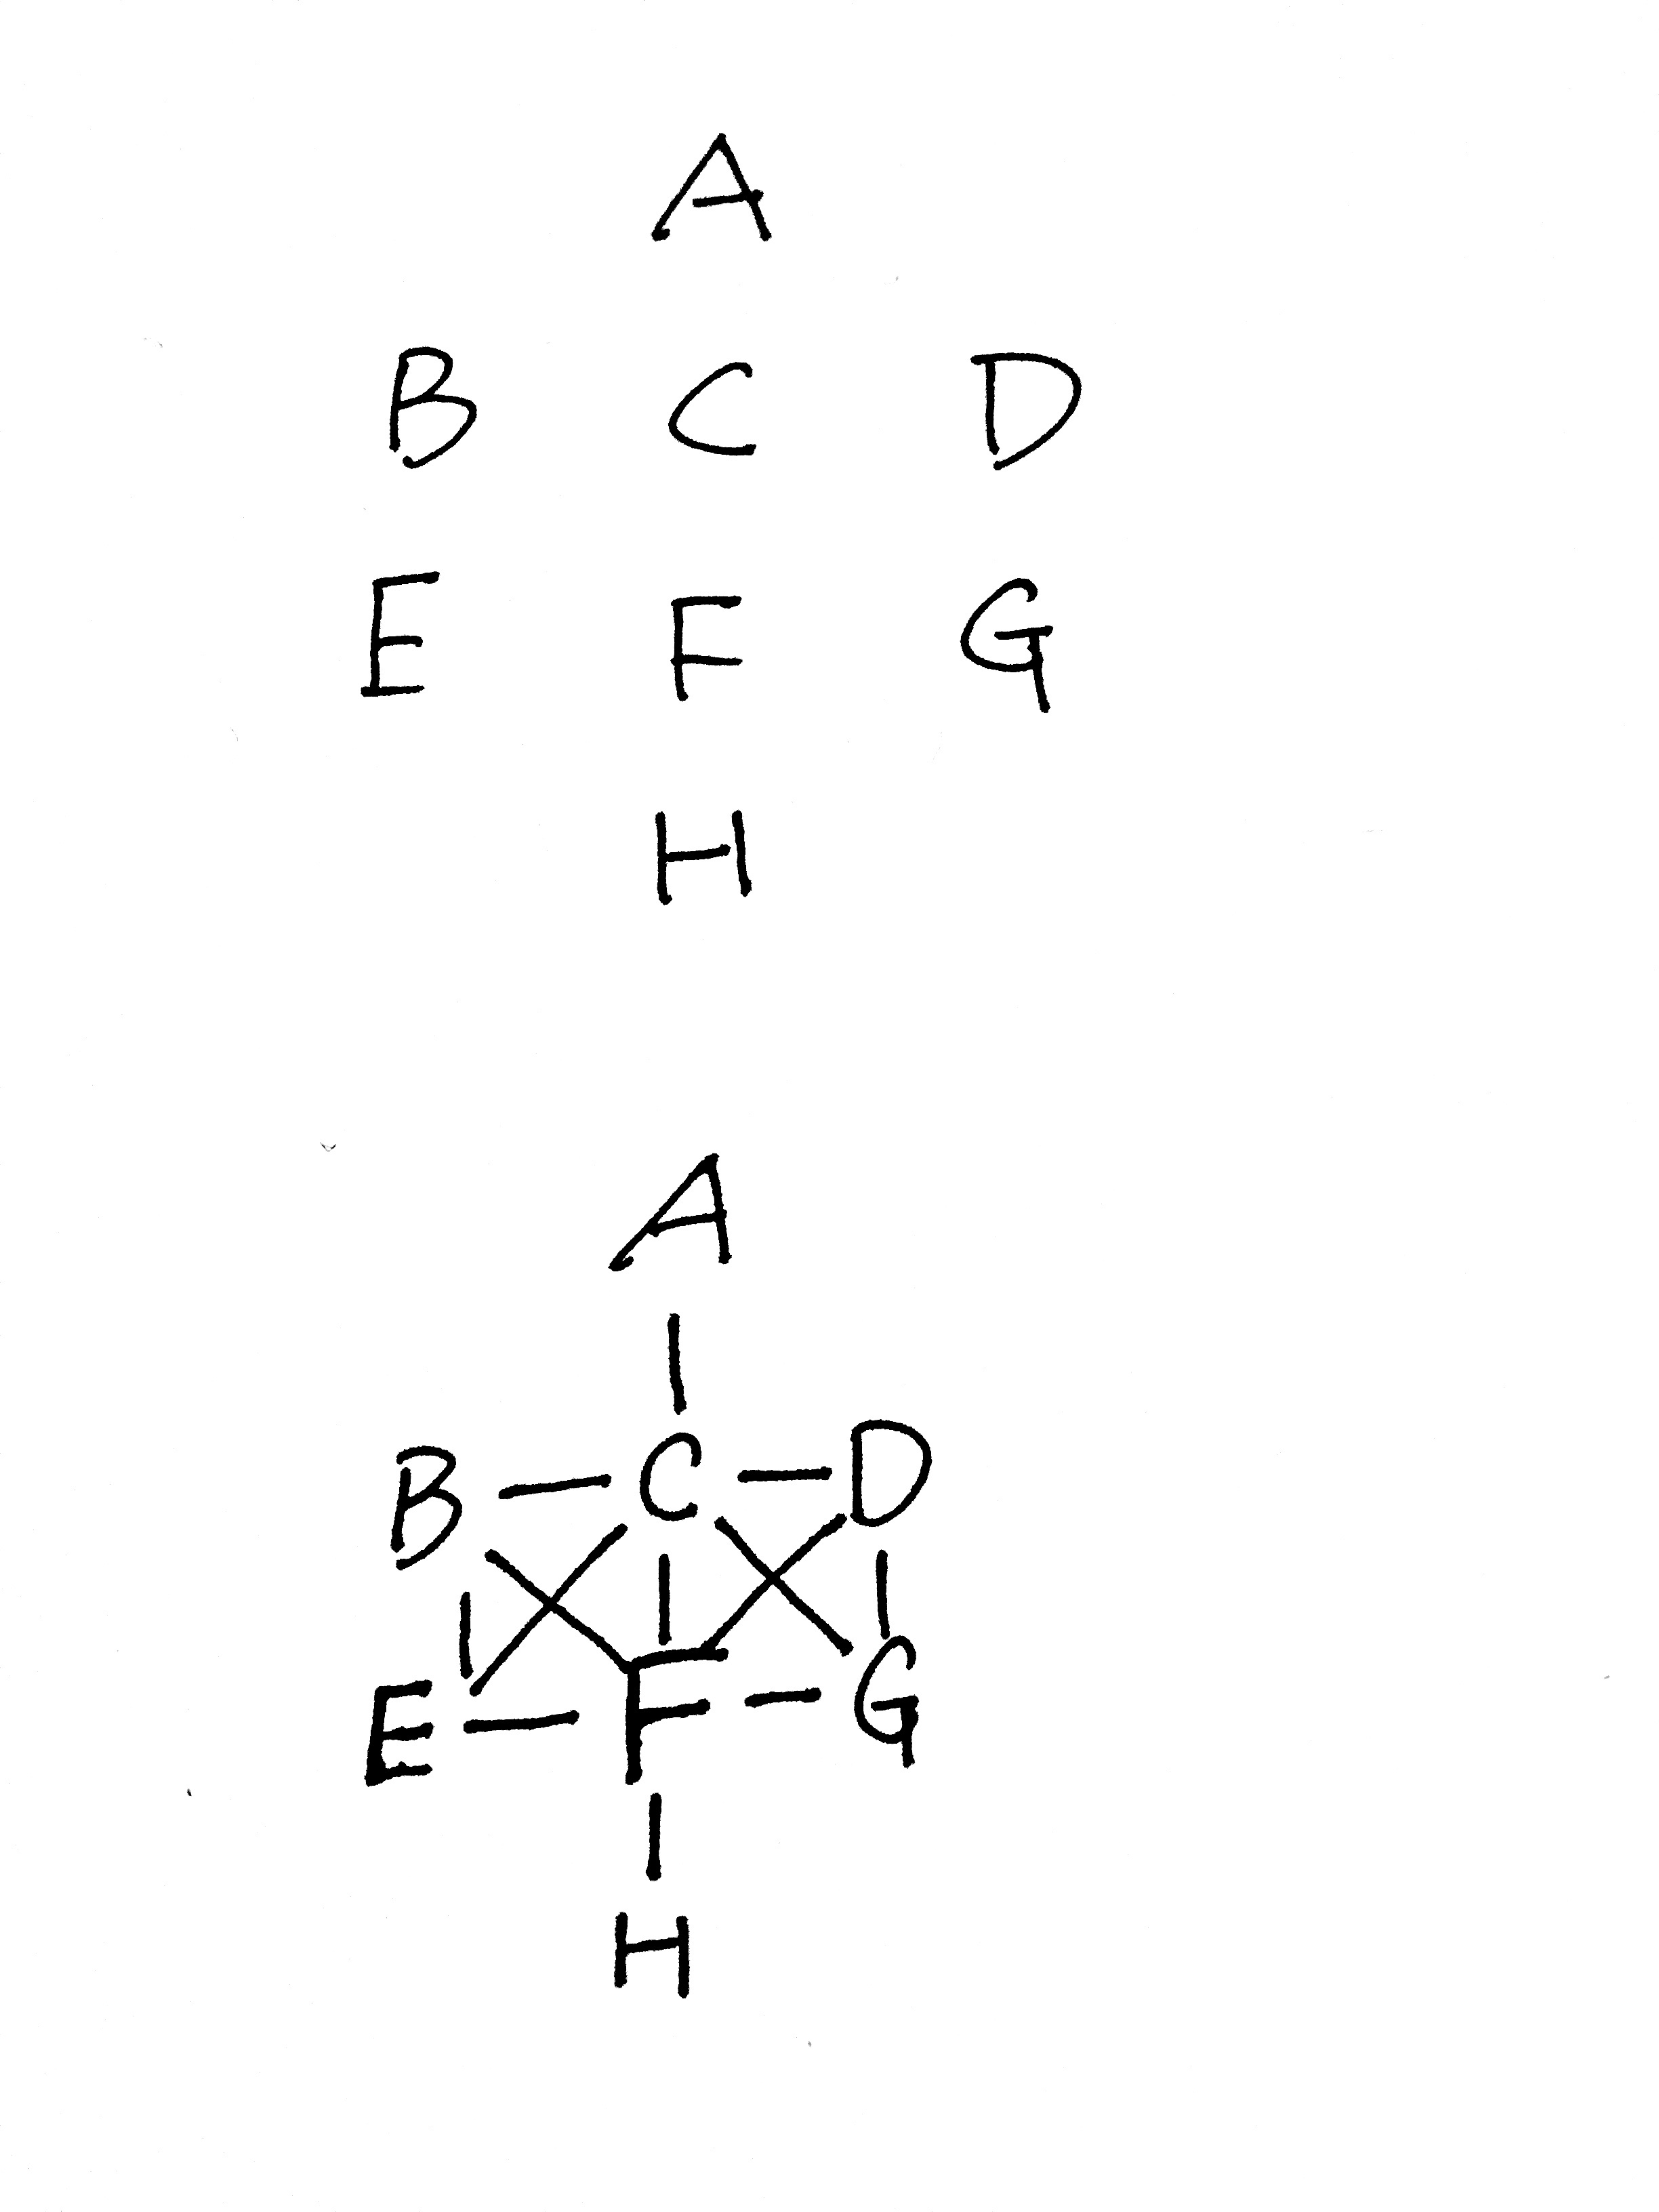 A
B C D
E F G
H
A
B C D
E F G
H